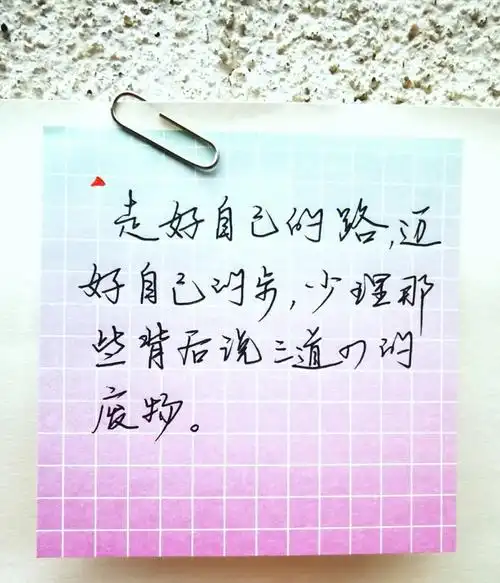 走好自己的路,迈
好自己的步,少理那
些背后说三道四的
废物。